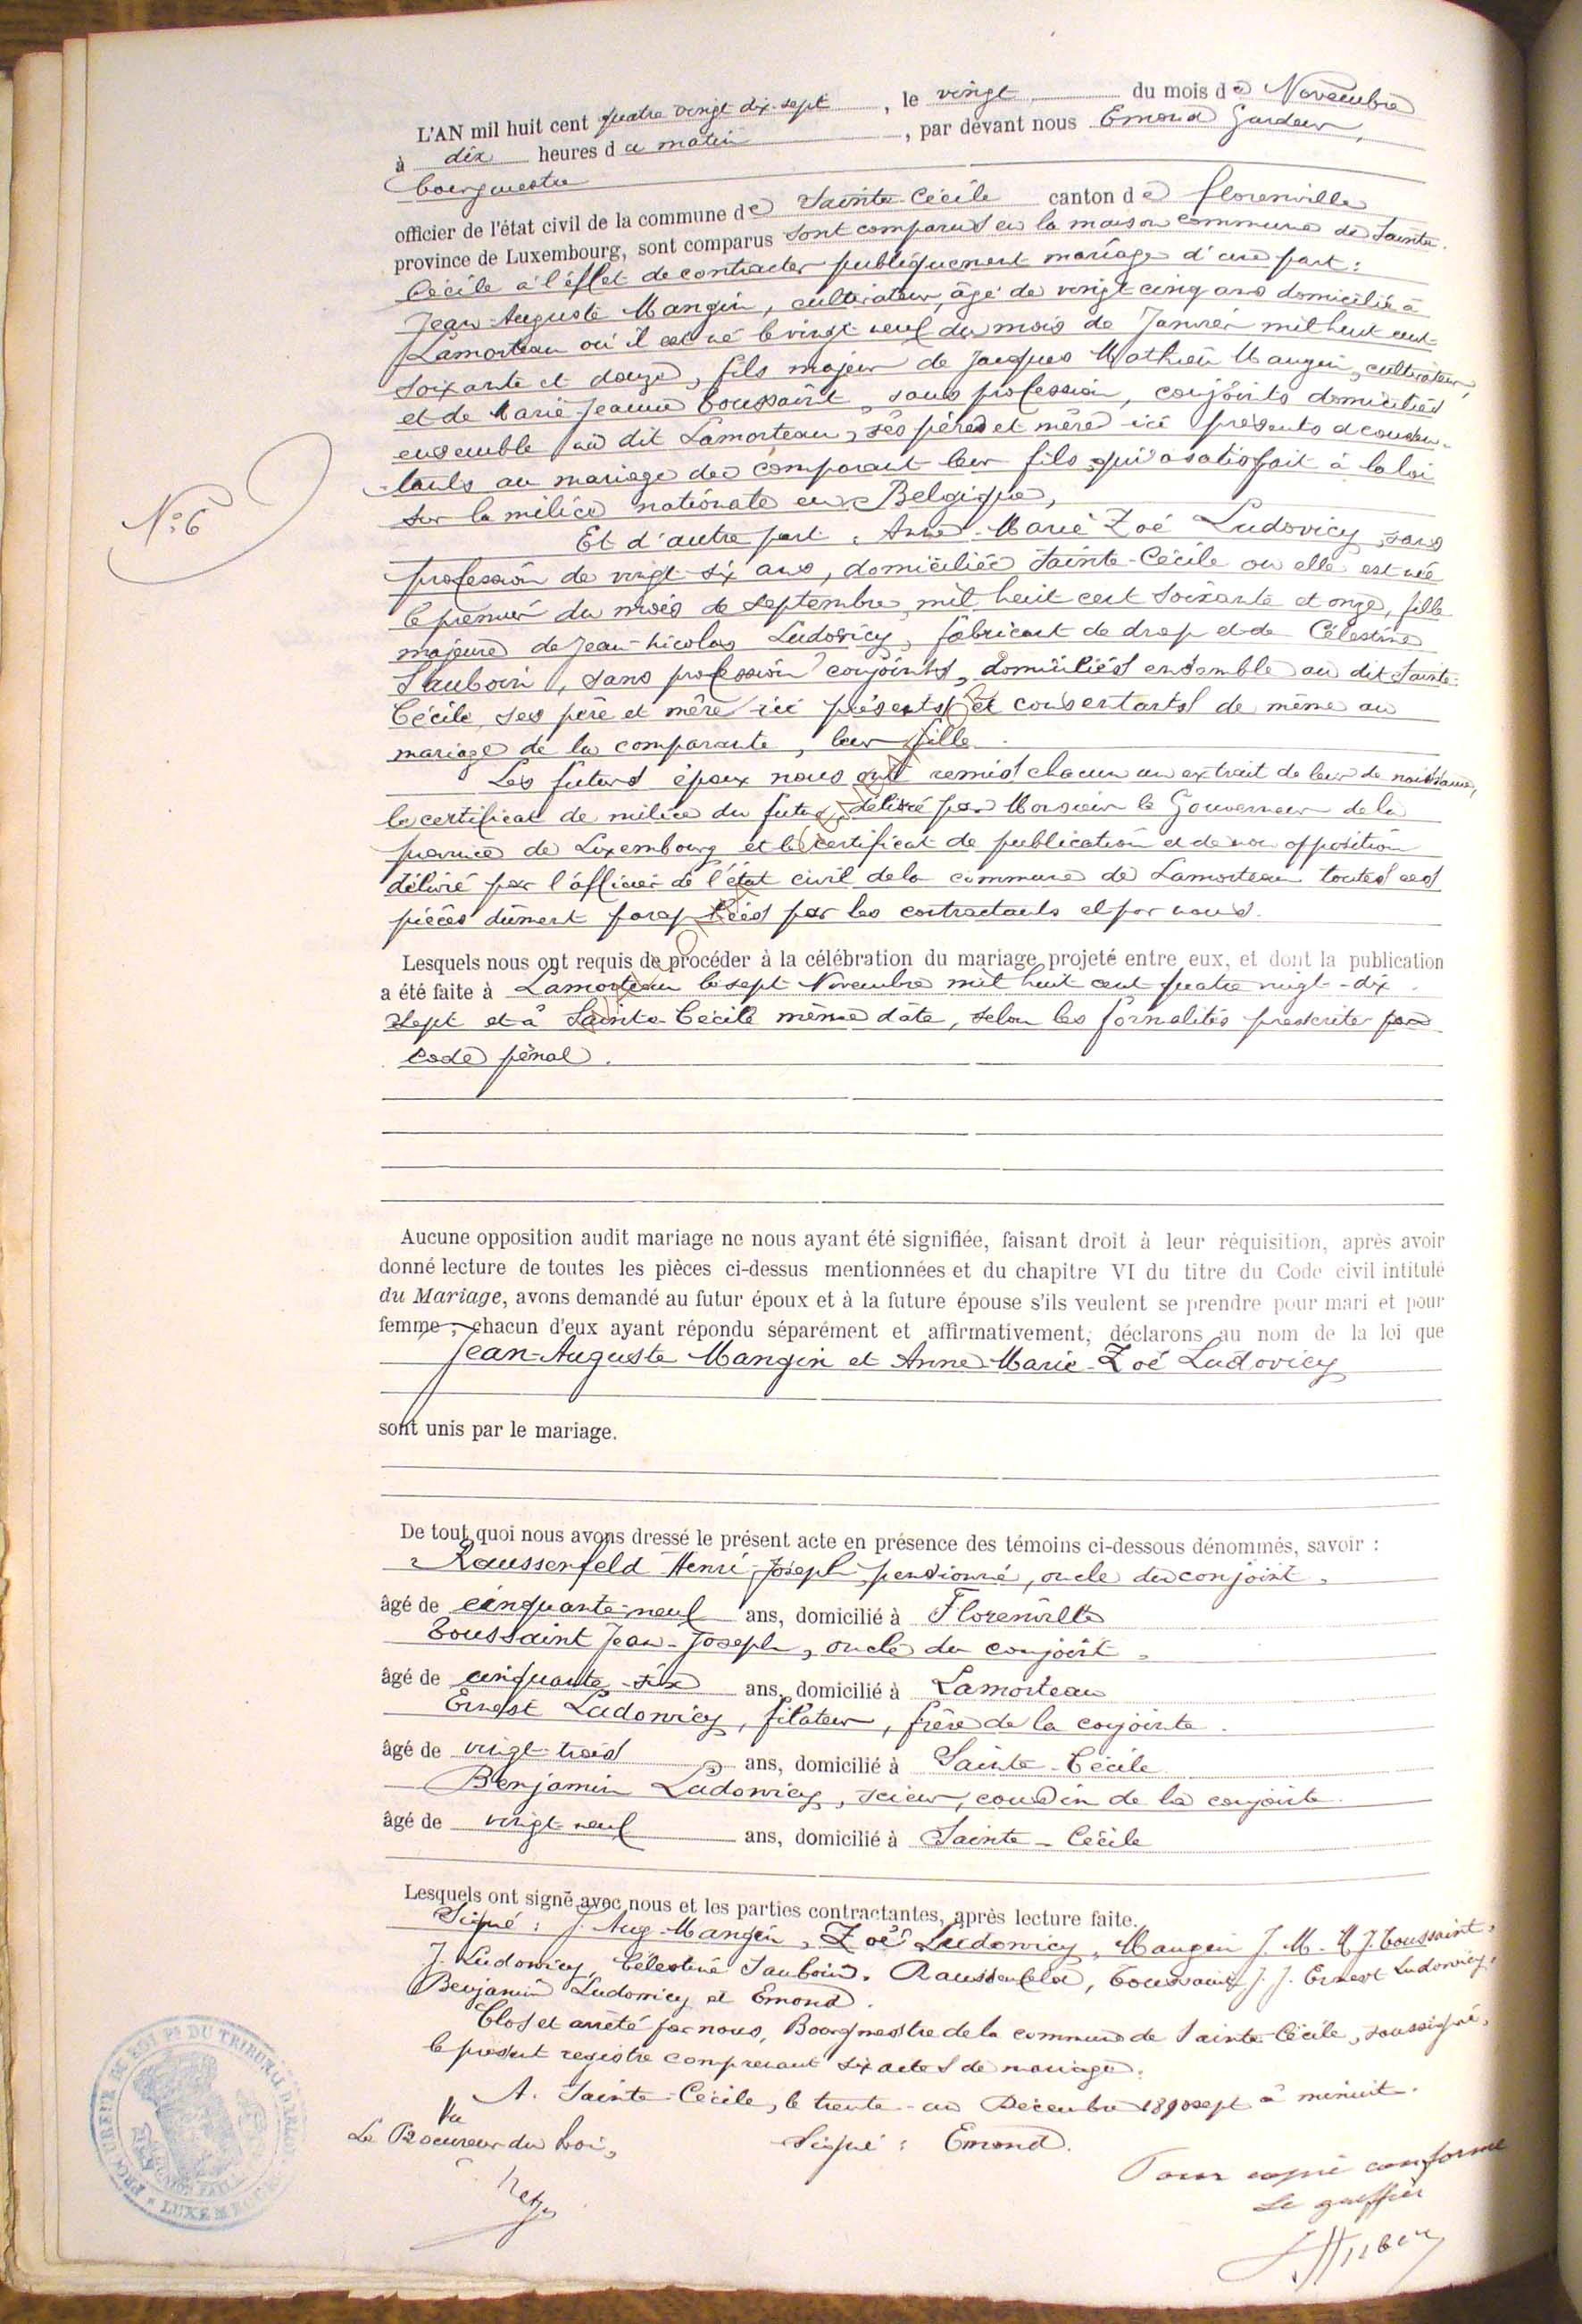 L'AN mil huit cent quatre vingt dix-sept, le vingt du mois de Novembre
à dix heures du matin, par devant nous Emond Gardeur,
bourgmestre
officier de l'état civil de la commune de Sainte-Cécile canton de Florenville
province de Luxembourg, sont comparus sont comparus en la maison commune de Sainte-
Cécile à l'éffet de contracter publiquement mariage d'une part :
Jean-Auguste Mangin, cultivateur, âgé de vingt cinq ans domicilié à
Lamorteau où il est né le vingt neuf du mois de Janvier mil huit cent
soixante et douze, fils majeur de Jacques Mathieu Mangin, cultivateur,
et de Marie-Jeanne Toussaint, sans profession, conjoints domiciliés
ensemble au dit Lamorteau, ses père et mère ici présents et consen-
tants au mariage du comparant leur fils qui a satisfait à la loi
sur la milice nationale en Belgique,
N°6
Et d'autre part, Anne-Marie Zoé Ludovicy, sans
profession de vingt-six ans, domiciliée Sainte-Cécile où elle est née
le premier du mois de septembre mil huit cent soixante et onze, fille
majeure de Jean-Nicolas Ludovicy, fabricant de drap et de Célestine
Sauboin, sans profession conjoints, domiciliés ensemble au dit Sainte-
Cécile, ses père et mère ici présents et consentants de même au
mariage de la comparante, leur fille.
Les futurs époux nous ont remis chacun un extrait de leur de naissance,
le certificat de milice du futur, délivré par Monsieur le Gouverneur de la
province de Luxembourg et le certificat de publication et de non opposition
délivré par l'officier de l'état civil de la commune de Lamorteau toutes ces
pièces dûment paraphées par les contractants et par nous.
Lesquels nous ont requis de procéder à la célébration du mariage projeté entre eux, et dont la publication
a été faite à Lamorteau le sept Novembre mil huit cent quatre vingt-dix
sept et à Sainte-Cécile même date, selon les formalités prescrites par
code pénal.
Aucune opposition audit mariage ne nous ayant été signifiée, faisant droit à leur réquisition, après avoir
donné lecture de toutes les pièces ci-dessus mentionnées et du chapitre VI du titre du Code civil intitulé
du Mariage, avons demandé au futur époux et à la future épouse s'ils veulent se prendre pour mari et pour
femme ; chacun d'eux ayant répondu séparément et affirmativement, déclarons au nom de la loi que
Jean-Auguste Mangin et Anne-Marie-Zoé Ludovicy
sont unis par le mariage.
De tout quoi nous avons dressé le présent acte en présence des témoins ci-dessous dénommés, savoir :
Raussenfeld Henri-Joseph, pensionné, oncle du conjoint,
âgé de cinquante-neuf ans, domicilié à Florenville
Toussaint Jean-Joseph, oncle du conjoint,
âgé de cinquante-six ans, domicilié à Lamorteau
Ernest Ludovicy, filateur, frère de la conjointe.
âgé de vingt-trois ans, domicilié à Sainte-Cécile
Benjamin Ludovicy, scieur, cousin de la conjointe.
âgé de vingt neuf ans, domicilié à Sainte-Cécile
Lesquels ont signé avec nous et les parties contractantes, après lecture faite.
Signé : J. Aug. Mangin, Zoé Ludovicy, Mangin J. M. M J. Toussaint,
J. Ludovicy, Célestine Sauboin, Raussenfeld, Toussaint J. J. Ernest Ludovicy,
Benjamin Ludovicy et Emond.
Clos et arrêté par nous, Bourgmestre de la commune de Sainte-Cécile, soussigné,
le présent registre comprenant six actes de mariage.
A Sainte-Cécile, le trente-un Décembre 1890sept à minuit.
Vu
Le Procureur du Roi,
Signé : Emond.
Pour copie conforme
Le greffier